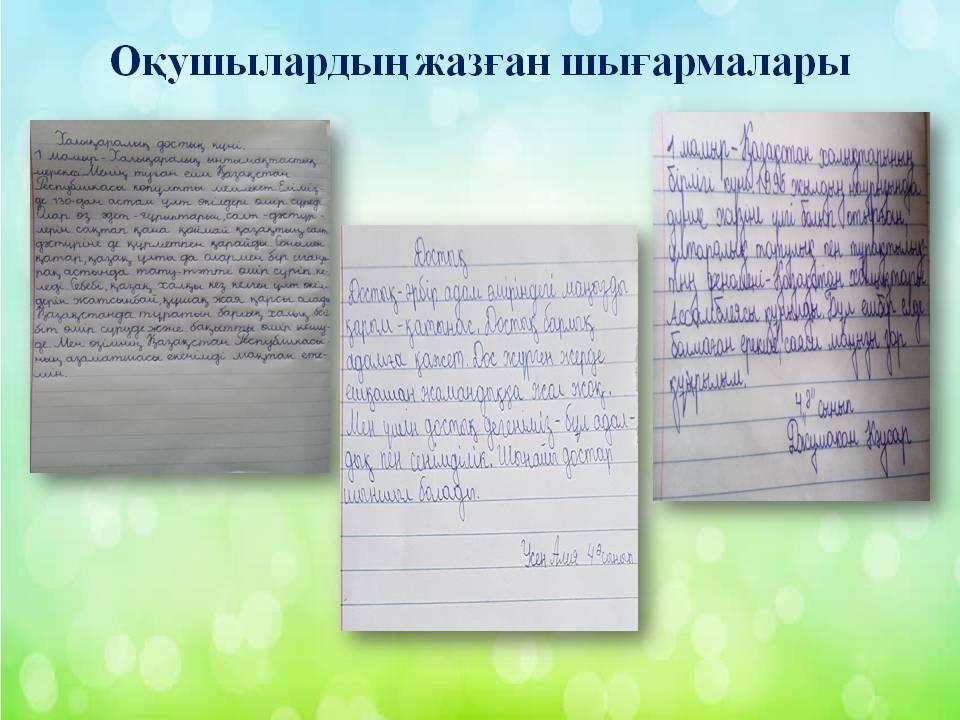 Оқушылардың жазған шығармалары
Халықаралық достық күні.
1 мамыр - Халықаралық ынтымақтастық
мерекесі. Менің туған елім Қазақстан
Республикасы көпұлтты мемлекет. Еліміз-
де 130-дан астам ұлт өкілдері өмір сүреді.
Олар өз әдет - ғұрыптарын, салт - дәстүр -
лерін сақтап қана қоймай қазақтың салт
дәстүріне де құрметпен қарайды. Сонымен
қатар, қазақ ұлты да олармен бір шаңы-
рақ астында тату-тәтті өмір сүріп ке-
леді. Себебі, қазақ халқы кез келген ұлт өкіл-
дерін жатсынбай, құшақ жая қарсы алады.
Қазақстанда тұратын барлық халық бей
біт өмір сүруде және бақытты өмір кешу-
де. Мен өзімнің Қазақстан Республикасы-
ның азаматшасы екенімді мақтан ете-
мін.
Достық
Достық-әрбір адам өміріндегі маңызды
қарым - қатынас. Достық барлық
адамға қажет. Дос жүрген жерде
ешқашан жамандыққа жол жоқ.
Мен үшін достық дегеніміз - бұл адал-
дық пен сенімділік. Шынайы достар
шыншыл болады.
Үсен Алия 4"ә" сынып
1 мамыр - Қазақстан халықтарының
бірлігі күні. 1995 жылдың наурызында
дүние жүзіне үлгі болып отырған,
ұлтаралық татулық пен тұрақтылық-
тың феномені - Қазақстан халықтары
Ассамблеясы құрылды. Бұл ешбір елде
болмаған ерекше, саяси маңызы зор
құрылым.
4 "ә" сынып
Джумахан Кәусар